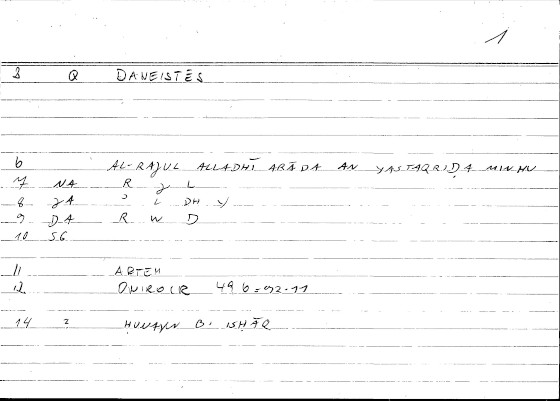 1
3 Q DANEISTĒS
6 AL-RAJUL ALLADHĪ ARĀDA AN YASTAQRIḌA MINHU
7 NA R J L
8 JA ʾ L DH Y
9 DA R W D
10 SG
11 ARTEM
12 ONIROCR 496=92.11
14 2 ḤUNAYN B. ISḤĀQ